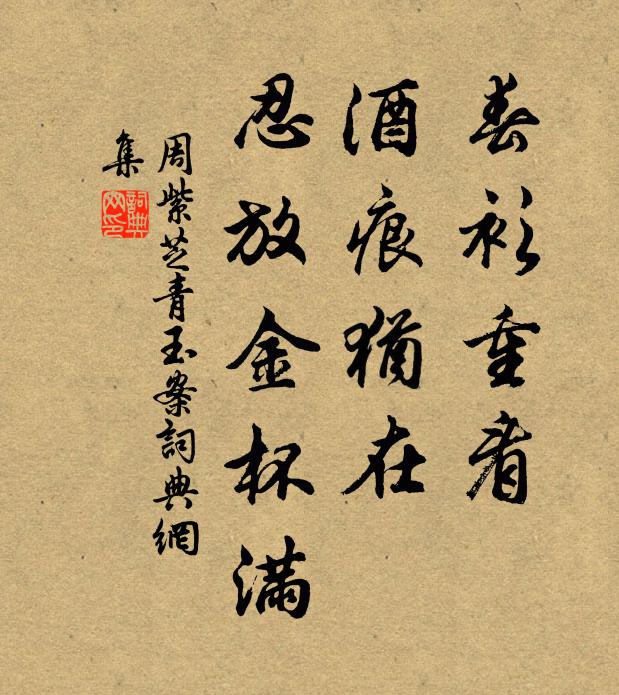 春衫重看
酒痕猶在
忍放金杯滿
周紫芝青玉案詞典網
集
詞典
網印